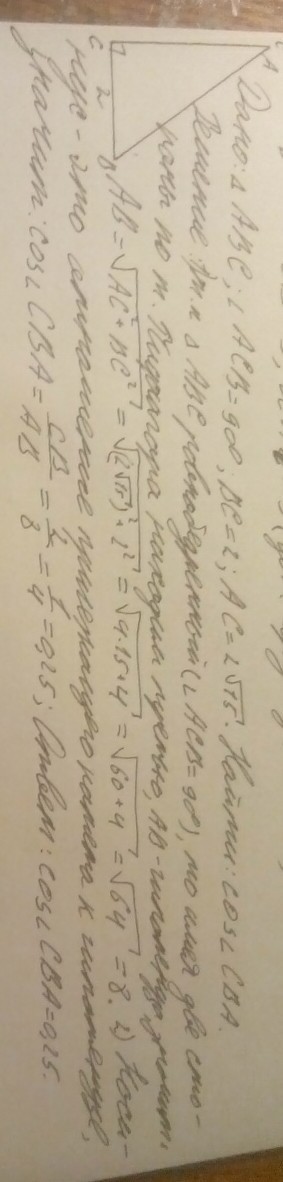 A
C 2 B
Дано: △ ABC; ∠ ACB=90; BC=2; AC=2√15. Найти: cos∠ CBA.
Решение: т.к △ ABC (∠ ACB=90), то имея две сто-
роны по т. Пифагора находим третью, AB-гипотенуза, значит:
AB=√AC²+BC² = √(2√15)²+2² = √4·15+4 = √60+4 = √64 = 8. 2) Коси-
нус - это отношение прилежащего катета к гипотенузе,
значит: cos∠ CBA = CB/AB = 2/8 = 1/4 = 0,25; Ответ: cos∠ CBA=0,25.